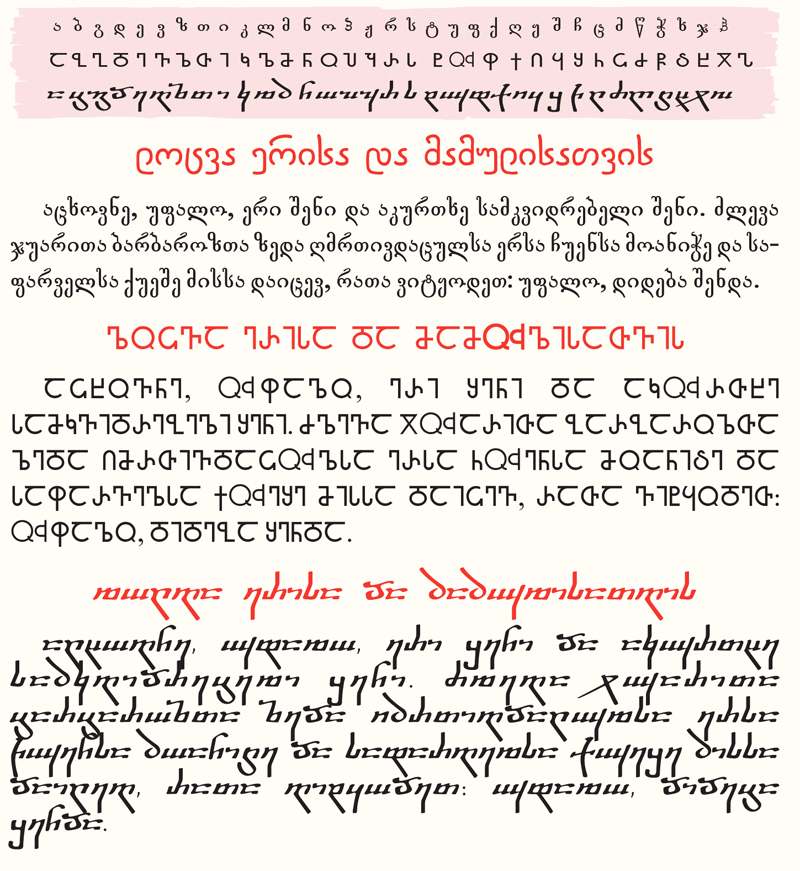 ა ბ გ დ ე ვ ზ თ ი კ ლ მ ნ ო პ ჟ რ ს ტ უ ფ ქ ღ ყ შ ჩ ც ძ წ ჭ ხ ჯ ჰ
Ⴀ Ⴁ Ⴂ Ⴃ Ⴄ Ⴅ Ⴆ Ⴇ Ⴈ Ⴉ Ⴊ Ⴋ Ⴌ Ⴍ Ⴎ Ⴏ Ⴐ Ⴑ Ⴒ ႭჃ Ⴔ Ⴕ Ⴖ Ⴗ Ⴘ Ⴙ Ⴚ Ⴛ Ⴜ Ⴝ Ⴞ Ⴟ Ⴠ
ლოცვა ერისა და მამულისათვის
აცხოვნე, უფალო, ერი შენი და აკურთხე სამკვიდრებელი შენი. ძლევა
ჯუარითა ბარბაროზთა ზედა ღმრთივდაცულსა ერსა ჩუენსა მოანიჭე და სა-
ფარველსა ქუეშე მისსა დაიცევ, რათა ვიტყოდეთ: უფალო, დიდება შენდა.
ႪႭႺႥႠ ႤႰႨႱႠ ႣႠ ႫႠႫႭჃႪႨႱႠႧႥႨႱ
ႠႺႾႭႥႬႤ, ႭჃႴႠႪႭ, ႤႰႨ ႸႤႬႨ ႣႠ ႠႩႭჃႰႧႾႤ
ႱႠႫႩႥႨႣႰႤႡႤႪႨ ႸႤႬႨ. ႻႪႤႥႠ ႿႭჃႠႰႨႧႠ ႡႠႰႡႠႰႭႦႧႠ
ႦႤႣႠ ႶႫႰႧႨႥႣႠႺႭჃႪႱႠ ႤႰႱႠ ႹႭჃႤႬႱႠ ႫႭႠႬႨႽႤ ႣႠ
ႱႠႴႠႰႥႤႪႱႠ ႵႭჃႤႸႤ ႫႨႱႱႠ ႣႠႨႺႤႥ, ႰႠႧႠ ႥႨႲႷႭႣႤႧ:
ႭჃႴႠႪႭ, ႣႨႣႤႡႠ ႸႤႬႣႠ.
ⴊⴍⴚⴅⴀ ⴄⴐⴈⴑⴀ ⴃⴀ ⴋⴀⴋⴍⴣⴊⴈⴑⴀⴇⴅⴈⴑ
ⴀⴚⴞⴍⴅⴌⴄ, ⴍⴣⴔⴀⴊⴍ, ⴄⴐⴈ ⴘⴄⴌⴈ ⴃⴀ ⴀⴉⴍⴣⴐⴇⴞⴄ
ⴑⴀⴋⴉⴅⴈⴃⴐⴄⴁⴄⴊⴈ ⴘⴄⴌⴈ. ⴛⴊⴄⴅⴀ ⴟⴍⴣⴀⴐⴈⴇⴀ
ⴁⴀⴐⴁⴀⴐⴍⴆⴇⴀ ⴆⴄⴃⴀ ⴖⴋⴐⴇⴈⴅⴃⴀⴚⴍⴣⴊⴑⴀ ⴄⴐⴑⴀ
ⴙⴍⴣⴄⴌⴑⴀ ⴋⴍⴀⴌⴈⴝⴄ ⴃⴀ ⴑⴀⴔⴀⴐⴅⴄⴊⴑⴀ ⴕⴍⴣⴄⴘⴄ ⴋⴈⴑⴑⴀ
ⴃⴀⴈⴚⴄⴅ, ⴐⴀⴇⴀ ⴅⴈⴒⴗⴍⴃⴄⴇ: ⴍⴣⴔⴀⴊⴍ, ⴃⴈⴃⴄⴁⴀ
ⴘⴄⴌⴃⴀ.